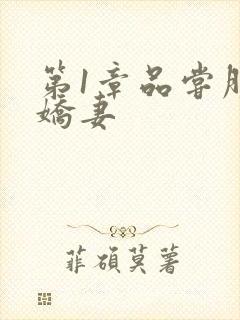 第1章品尝
娇妻
菲硕莫薯